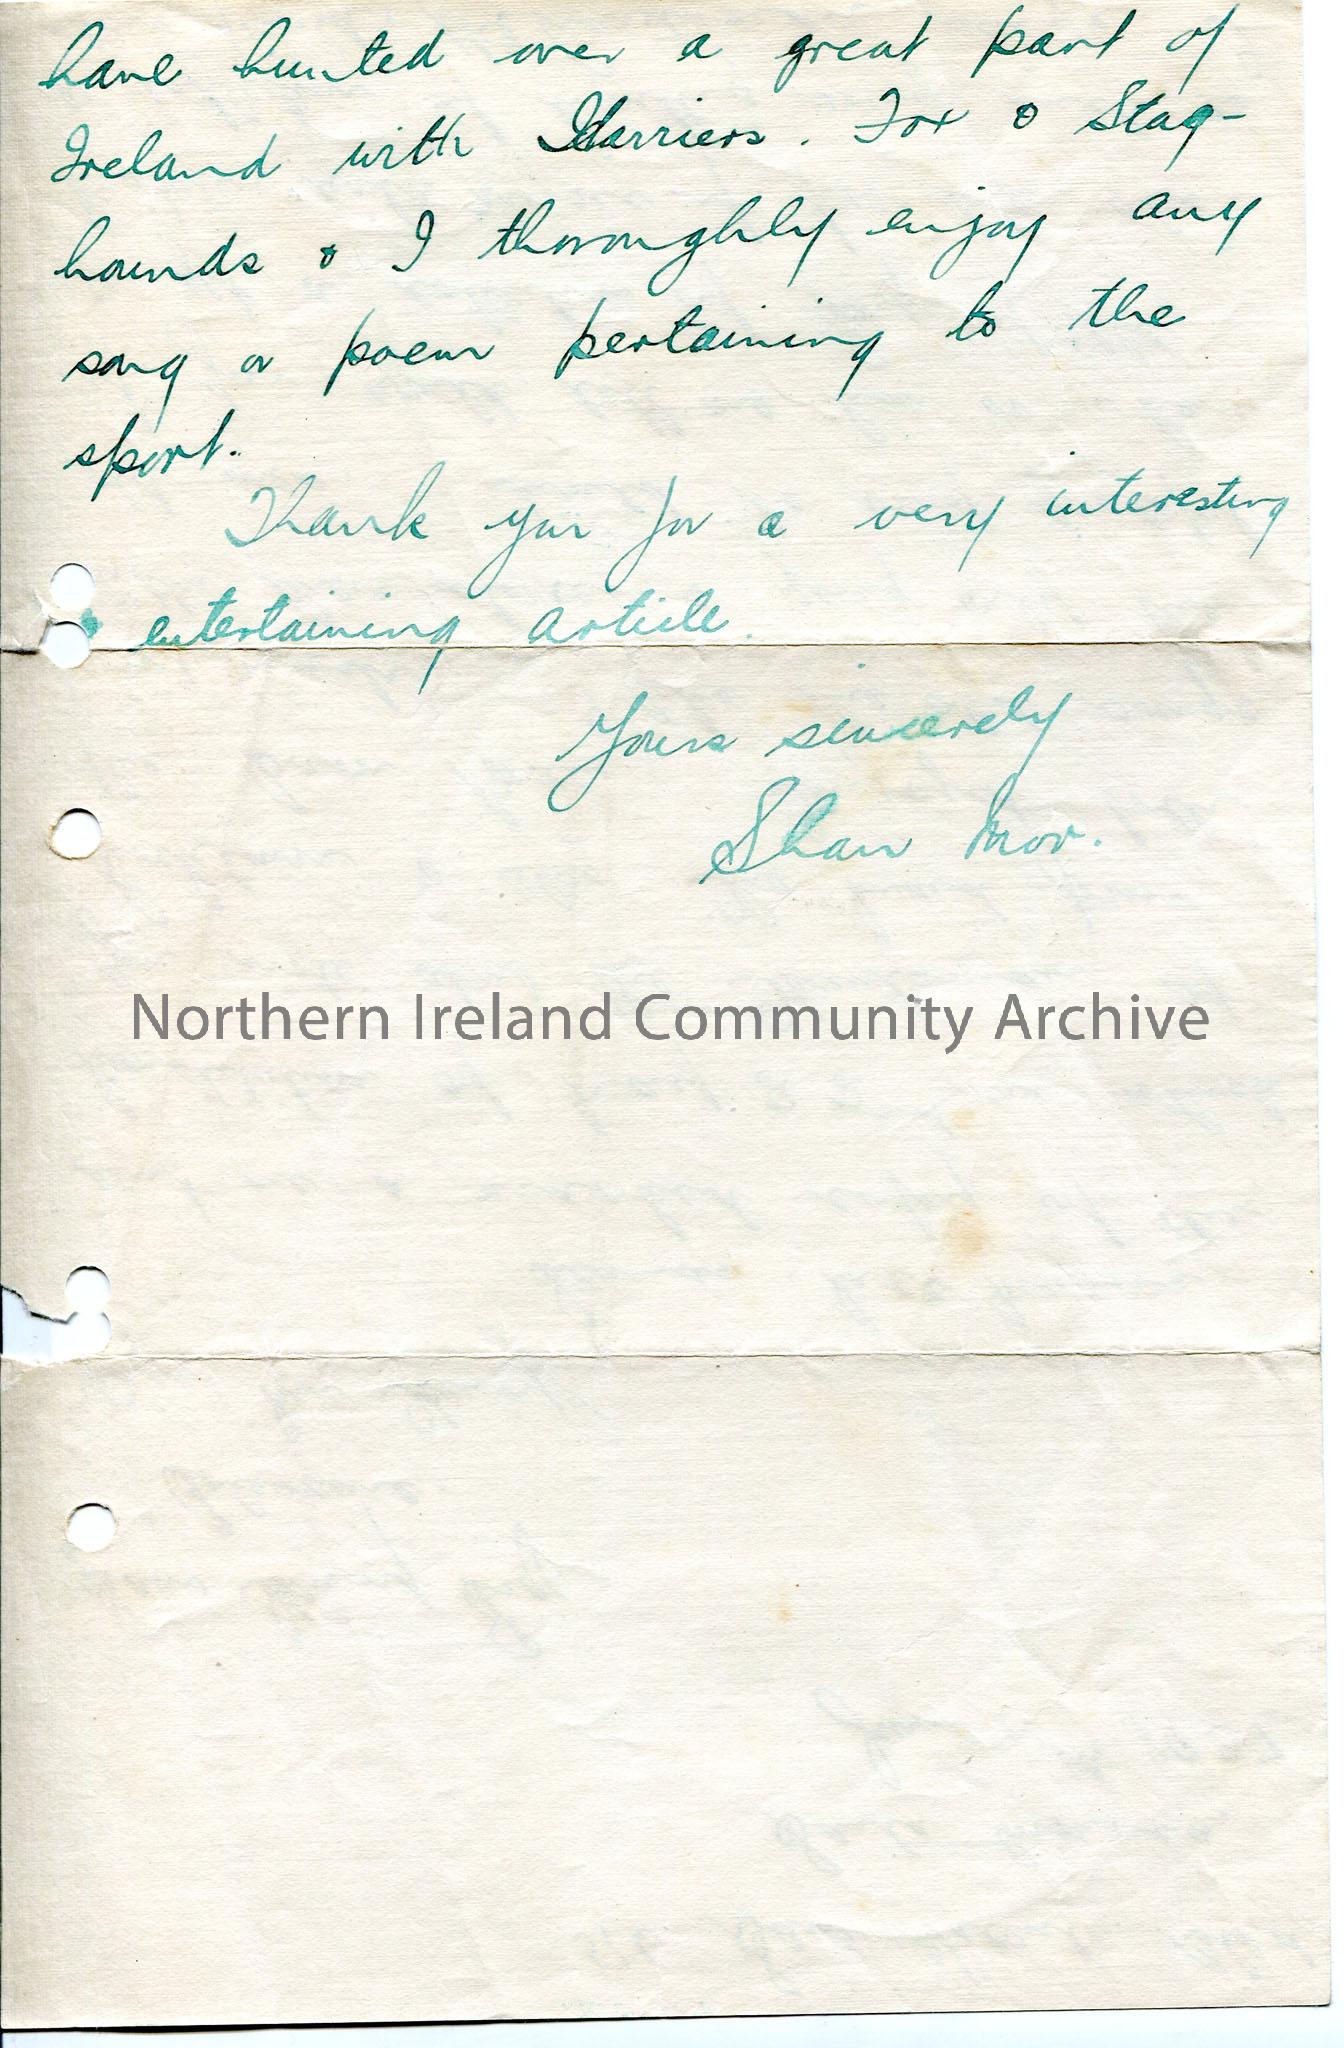 have hunted over a great part of
Ireland with Harriers. Fox & Stag-
hounds & I thoroughly enjoy any
song or poem pertaining to the
sport.
Thank you for a very interesting
& entertaining article.
Yours sincerely
Shan Mor.
Northern Ireland Community Archive